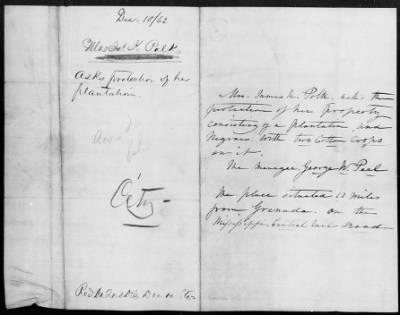 Dec. 10/62
Mrs Jas K. Polk.
Asks protection of her
plantation.
City
Rec'd Dec 10 '62
Mrs. James K. Polk. ask. the
protection of her Property
consisting of a Plantation and
Negroes. With two Cotton Crops
on it.
The manager, George W. Peel
The place situated 12 miles
from Grenada. on the
Mississippi Central Rail Road